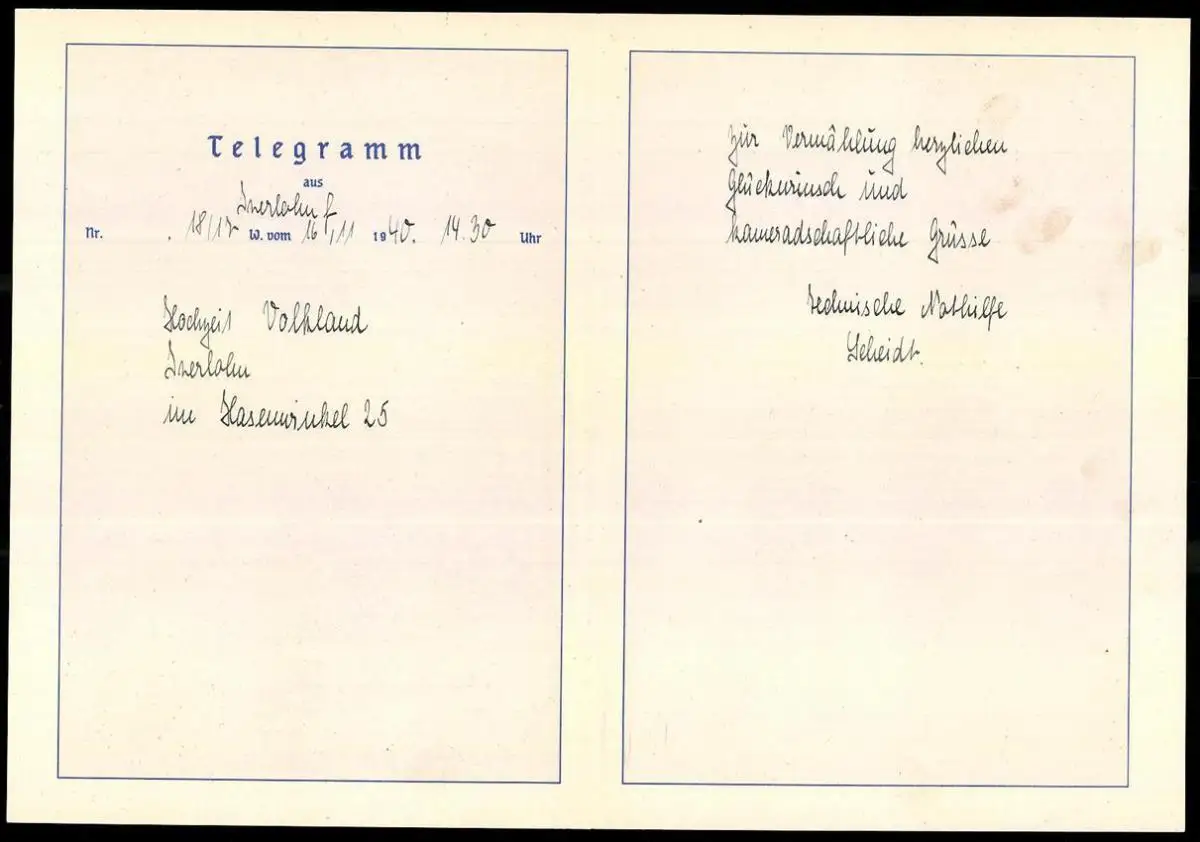 Telegramm
aus
Iserlohn f
Nr. 18/17 W. vom 16/11 1940. 14.30 Uhr
Hochzeit Volkland
Iserlohn
im Hasenwinkel 25
Zur Vermählung herzlichen
Glückwunsch und
kameradschaftliche Grüsse
Technische Nothilfe
Scheidt.